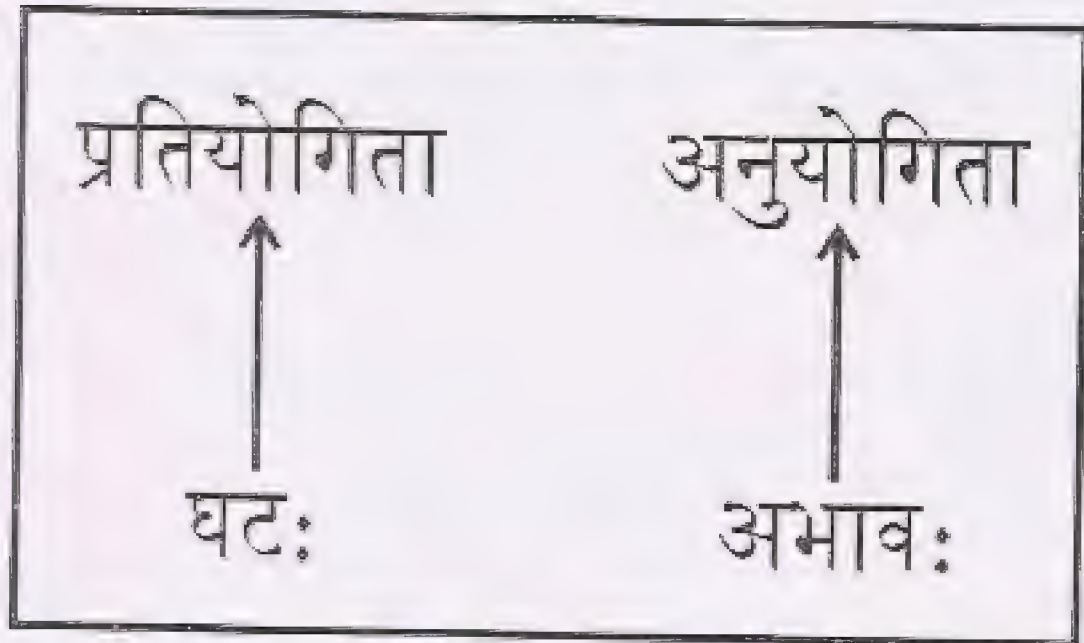 प्रतियोगिता अनुयोगिता
घटः अभावः